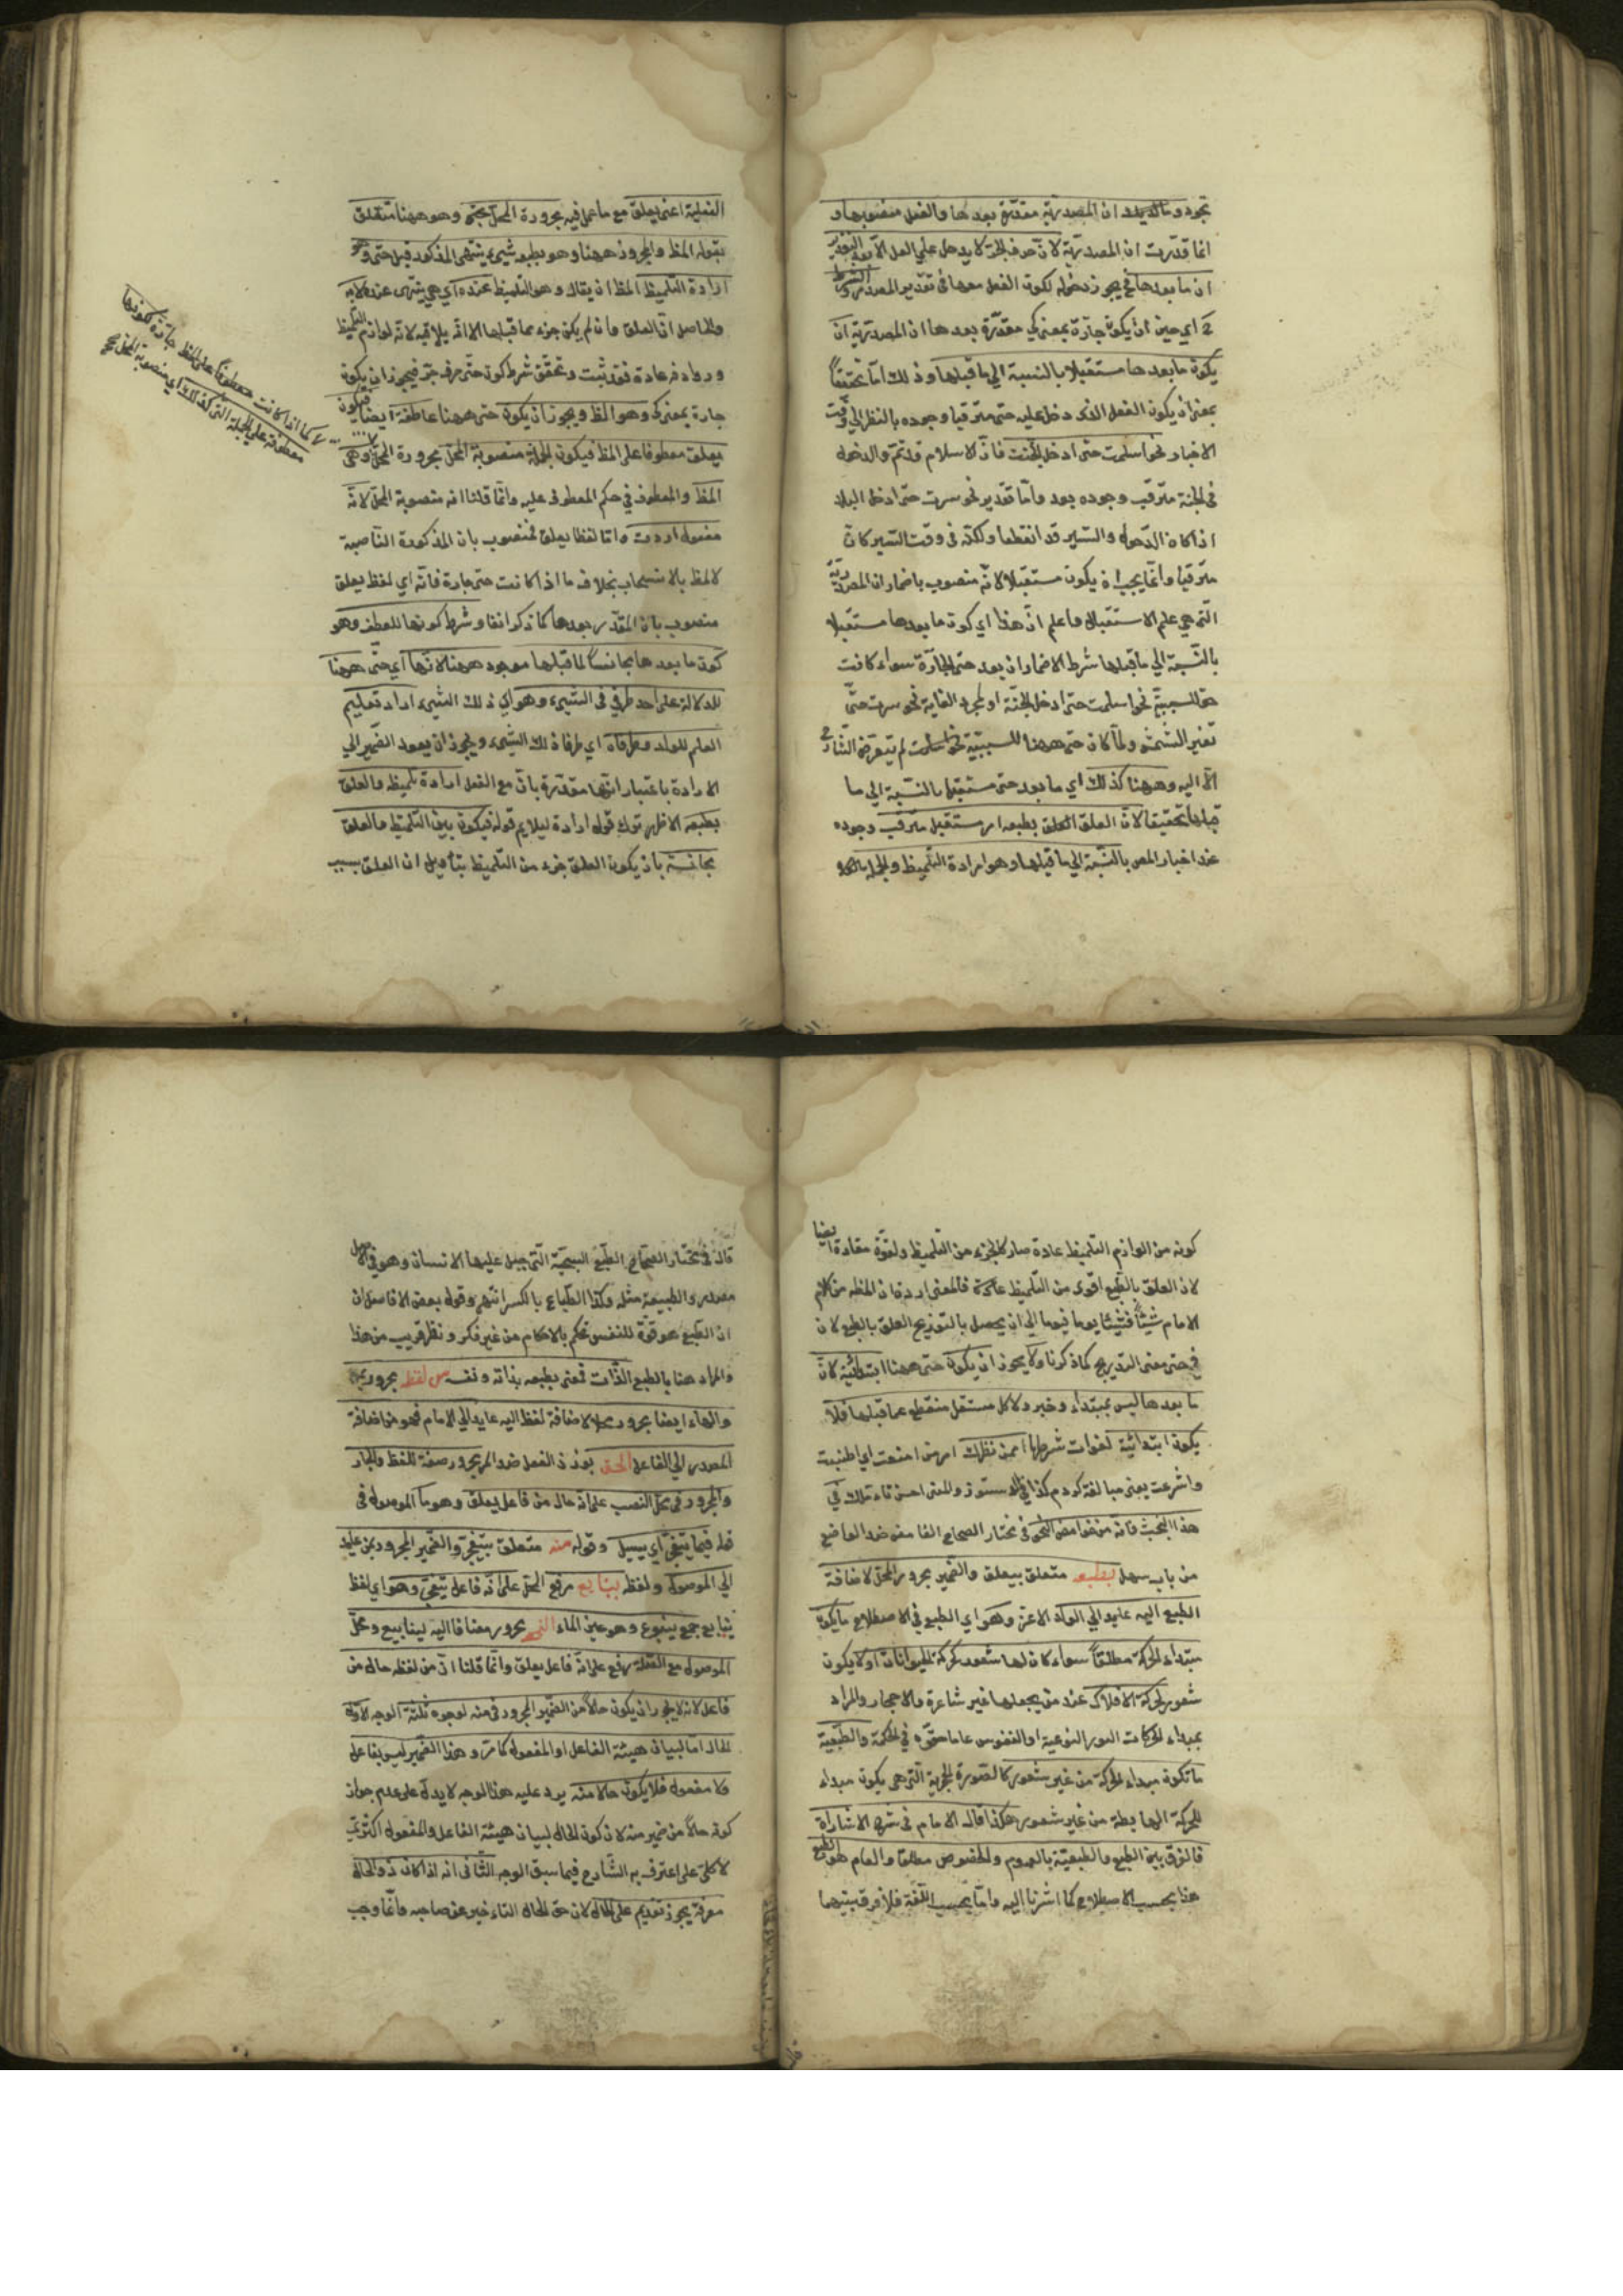 ان المصدرية مقدرة بعدها والفعل منصوب بها و
انما قدرت ان المصدرية لان حرف الجر لا يدخل على الفعل الا بعد التقدير
ان ما بعدها فح يجوز دخوله لكون الفعل معها في تقدير المصدر والشرط
اي حين ان يكون جارة بمعنى كي مقدرة بعدها ان المصدرية ان
يكون ما بعدها مستقبلا بالنسبة الى ما قبلها وذلك اما تحقيقا
بمعنى ان يكون الفعل الذي دخل عليه حتى مترقبا وجوده بالنظر الى وقت
الاخبار نحو اسلمت حتى ادخل الجنة فان الاسلام قد تم والدخول
في الجنة مترقب وجوده بعد واما تقدير نحو سرت حتى ادخل البلد
اذا كان الدخول والسير قد انقطعا ولكنه في وقت السير كان
مترقبا وانما يجب ان يكون مستقبلا لانه منصوب باضمار ان المصدرية
التي هي علم الاستقبال واعلم ان هذا اي كون ما بعدها مستقبلا
بالنسبة الى ما قبلها شرط الاضمار ان بعد حتى الجارة سواء كانت
حتى للسببية نحو اسلمت حتى ادخل الجنة او لمجرد الغاية نحو سرت حتى
تغيب الشمس ولما كان حتى ههنا للسببية نحو اسلمت لم يتعرض الشارح
الا اليه وههنا كذلك اي ما بعد حتى مستقبل بالنسبة الى ما
قبلها تحقيقا لان العلق بطبعه امر مستقبل مترقب وجوده
عند اخبار المص بالنسبة الى ما قبلها وهو ارادة التلميظ والجملة
الفعلية اعني يعلق مع ما عمل فيه مجرورة المحل بحتى وهو ههنا متعلق
بقوله المظ والمجرور ههنا وهو بطبعه شيء ينتهى المذكور قبل حتى وهو
ارادة التلميظ المظ ان يقال وهو التلميظ عنده اي هي ينتهى عنده لا به
والحاصل ان العلق وان لم يكن جزء مما قبلها الا انه يلاقيه لانه لوازم التلميظ
وروادفه عادة فقد ثبت وتحقق شرط كون حتى حرف جر فيجوز ان يكون
جارة بمعنى كي وهو المظ ويجوز ان يكون حتى ههنا عاطفة ايضا فيكون
يعلق معطوفا على المظ فيكون الجملة منصوبة المحل مجرورة المحل وهى
المظ والمعطوف في حكم المعطوف عليه وانما قلنا انه منصوبة المحل لانه
مفعول اردت واما لفظا يعلق فمنصوب بان المذكورة الناصبة
لالمظ بالانسحاب بخلاف ما اذا كانت حتى جارة فانه اي لفظ يعلق
منصوب بان المقدر بعدها كما ذكر انفا وشرط كونها للعطف وهو
كون ما بعدها مجانسا لما قبلها موجود ههنا لانها اي حتى ههنا
للدلالة على احد طرفي الشيء وهو اي ذلك الشيء اراد تعليم
العلم للولد وطرفاه اي طرفا ذلك الشيء ويجوز ان يعود الضمير الى
الارادة باعتبار انها مقدرة بان مع الفعل ارادة تلميظه والعلق
بطبعه الاظهر ترك قوله ارادة ليلايم قوله فيكون بين التلميظ والعلق
مجانسة بان يكون العلق جزء من التلميظ بتأويل ان العلق بسبب
لا كما اذا كانت معطوفا على المظ جارة لكونها
معطوفة على الجملة التي كذلك اي منصوبة المحل
كونه من لوازم التلميظ عادة صار كالجزء من التلميظ ولقوة مقادة ايضا
لان العلق بالطبع اقوى من التلميظ عادة فالمعنى اردت ان المظه من كلام
الامام شيئا فشيئا يوما فيوما الى ان يحصل بالتدريج العلق بالطبع لان
في حتى معنى التدريج كما ذكرنا ولا يجوز ان يكون حتى ههنا ابتدائية لان
ما بعدها ليس بمبتداء وخبر ولا كل مستقل منقطع عما قبلها فلا
يكون ابتدائية لفوات شرطها امعن نظرك امر من امعنت اي اطنبت
واشرعت يعني مبالغة كردم كذا في الدستور والمعنى احسن تاملك في
هذا البحث فانه من غوامض النحو في مختار الصحاح الغامض ضد الواضح
من باب سهل بطبعه متعلق بيعلق والضمير مجرور المحل لاضافة
الطبع اليه عايد الى الولد الاعز وهو اي الطبع في الاصطلاح ما يكون
مبتداء الحركة مطلقا سواء كان لها شعور كحركة الحيوانات او لا يكون
شعور لحركة الافلاك عند من يجعلها غير شاعرة والاحجار والمراد
بمبداء الحركات الصور النوعية او النفوس على ما حقق في الحكمة والطبيعية
ما تكون مبداء الحركة من غير شعور كالصورة الحجرية التي هي يكون مبداء
للحركة الهابطة من غير شعور هكذا قال الامام في شرح الاشارات
فالفرق بين الطبع والطبيعية بالعموم والخصوص مطلقا والعام هو الطبع
هذا بحسب الاصطلاح كما اشرنا اليه واما بحسب اللغة فلا فرق بينهما
قال في مختار الصحاح الطبع السجية التي جبل عليها الانسان وهو في الاصل
مصدر والطبيعة مثله وكذا الطباع بالكسر انتهى وقول بعض الافاضل ان
ان الطبع هو قوة للنفس تحكم بالاحكام من غير فكر ونظر قريب من هذا
والمراد هنا بالطبع الذات فمعنى بطبعه بذاته ونفسه من لفظه مجرور بمن
والهاء ايضا مجرور محلا لاضافة لفظ اليه عايد الى الامام فهو من اضافة
المصدر الى الفاعل ضد المر مجرور صفة للفظ والجار
والمجرور في محل النصب على انه حال من فاعل يعلق وهو ما الموصول في
قوله فيما يتفجر اي يسيل وقوله منه متعلق بيتفجر والضمير المجرور بمن عايد
الى الموصول ولفظ ينابيع مرفوع المحل على انه فاعل يتفجر وهو اي لفظ
ينابيع جمع ينبوع وهو عين الماء مجرور مضافا اليه لينابيع ومحل
الموصول مع الصلة رفع على انه فاعل يعلق وانما قلنا ان من لفظه حال من
فاعل لانه لا يجوز ان يكون حالا من الضمير المجرور في منه لوجوه ثلثة الوجه الاول
الحال اما لبيان هيئة الفاعل او المفعول كما مر وهذا الضمير ليس بفاعل
ولا مفعول فلا يكون حالا منه يرد عليه هذا الوجه لا يدل على عدم جواز
كونه حالا من ضمير منه لان كون الحال لبيان هيئة الفاعل والمفعول اكثرى
لا كلى على اعترف به الشارح فيما سبق الوجه الثانى انه اذا كان ذو الحال
معرفة يجوز تقديم على الحال لان حق الحال التاء خير عن صاحبه وانما وجب